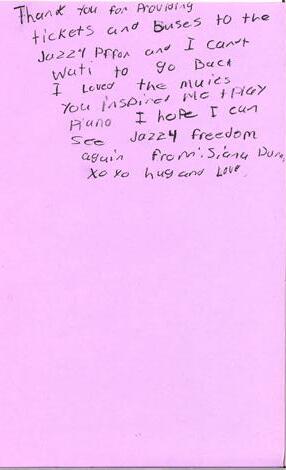 Thank you for Providing
tickets and Buses to the
Jazzy Prfon and I can't
wati to go Back
I Loved the muies
You inspired Me t Play
Piano I hope I can
see Jazzy freedom
again from: Siana
xo xo hug and Love.